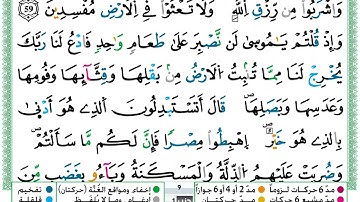 وَاشْرَبُوا مِن رِّزْقِ اِ۬للَّهِ وَلَا تَعْثَوْا فِے اِ۬لَارْضِ مُفْسِدِينَ 59
وَإِذْ قُلْتُمْ يَٰمُوسَىٰ لَن نَّصْبِرَ عَلَىٰ طَعَامٍ وَٰحِدٍ فَادْعُ لَنَا رَبَّكَ
يُخْرِجْ لَنَا مِمَّا تُنۢبِتُ اُ۬لَارْضُ مِنۢ بَقْلِهَا وَقِثَّآئِهَا وَفُومِهَا
وَعَدَسِهَا وَبَصَلِهَا قَالَ أَتَسْتَبْدِلُونَ اَ۬لذِے هُوَ أَدْنَىٰ
بِالذِے هُوَ خَيْرٌ اِ۪هْبِطُوا مِصْراً فَإِنَّ لَكُم مَّا سَأَلْتُمْ
وَضُرِبَتْ عَلَيْهِمُ اُ۬لذِّلَّةُ وَالْمَسْكَنَةُ وَبَآءُو بِغَضَبٍ مِّنَ
مدّ 6 حركات لزوماً مدّ 2 أو 4 أو 6 جوازاً إخفاء ومواقع الغُنَّة (حركتان) تفخيم
مدّ مشبع 6 حركات مدّ حركتان إدغام وما لا يُلفَظ قلقلة
9